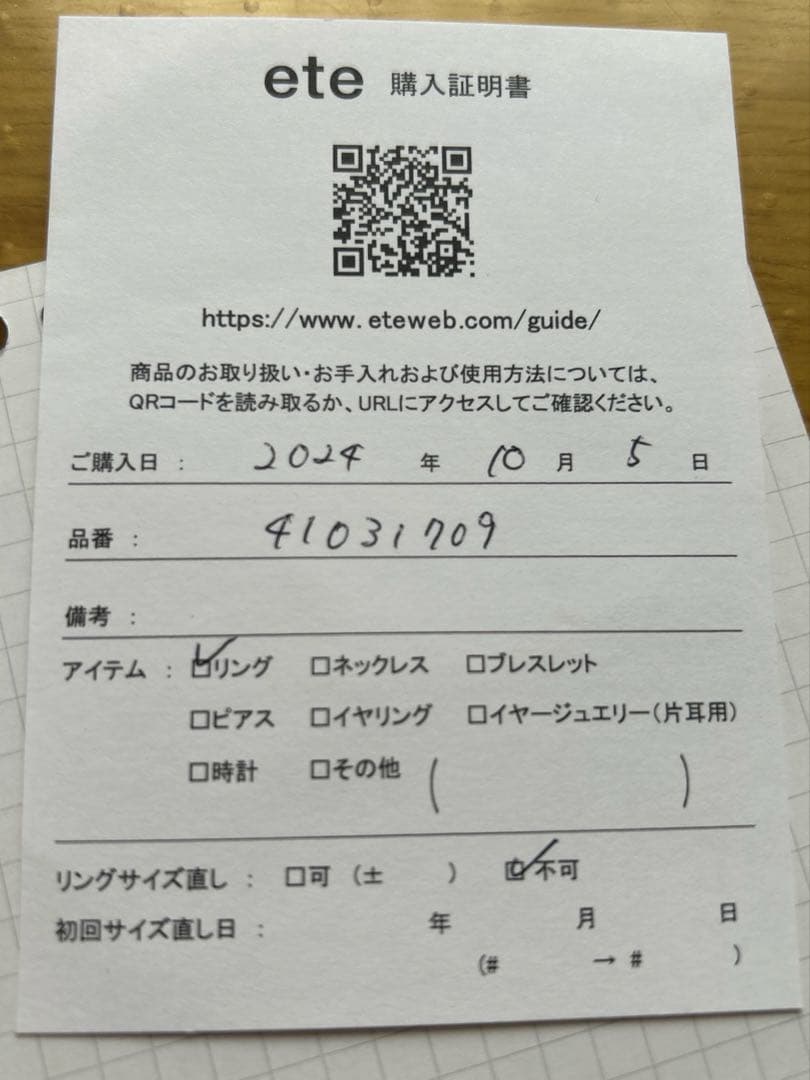 ete 購入証明書
https://www.eteweb.com/guide/
商品のお取り扱い・お手入れおよび使用方法については、
QRコードを読み取るか、URLにアクセスしてご確認ください。
ご購入日 : 2024 年 10 月 5 日
品番 : 41031709
備考 :
アイテム : ☑リング □ネックレス □ブレスレット
□ピアス □イヤリング □イヤージュエリー(片耳用)
□時計 □その他 ( )
リングサイズ直し : □可 (± ) ☑不可
初回サイズ直し日 : 年 月 日
(# → # )